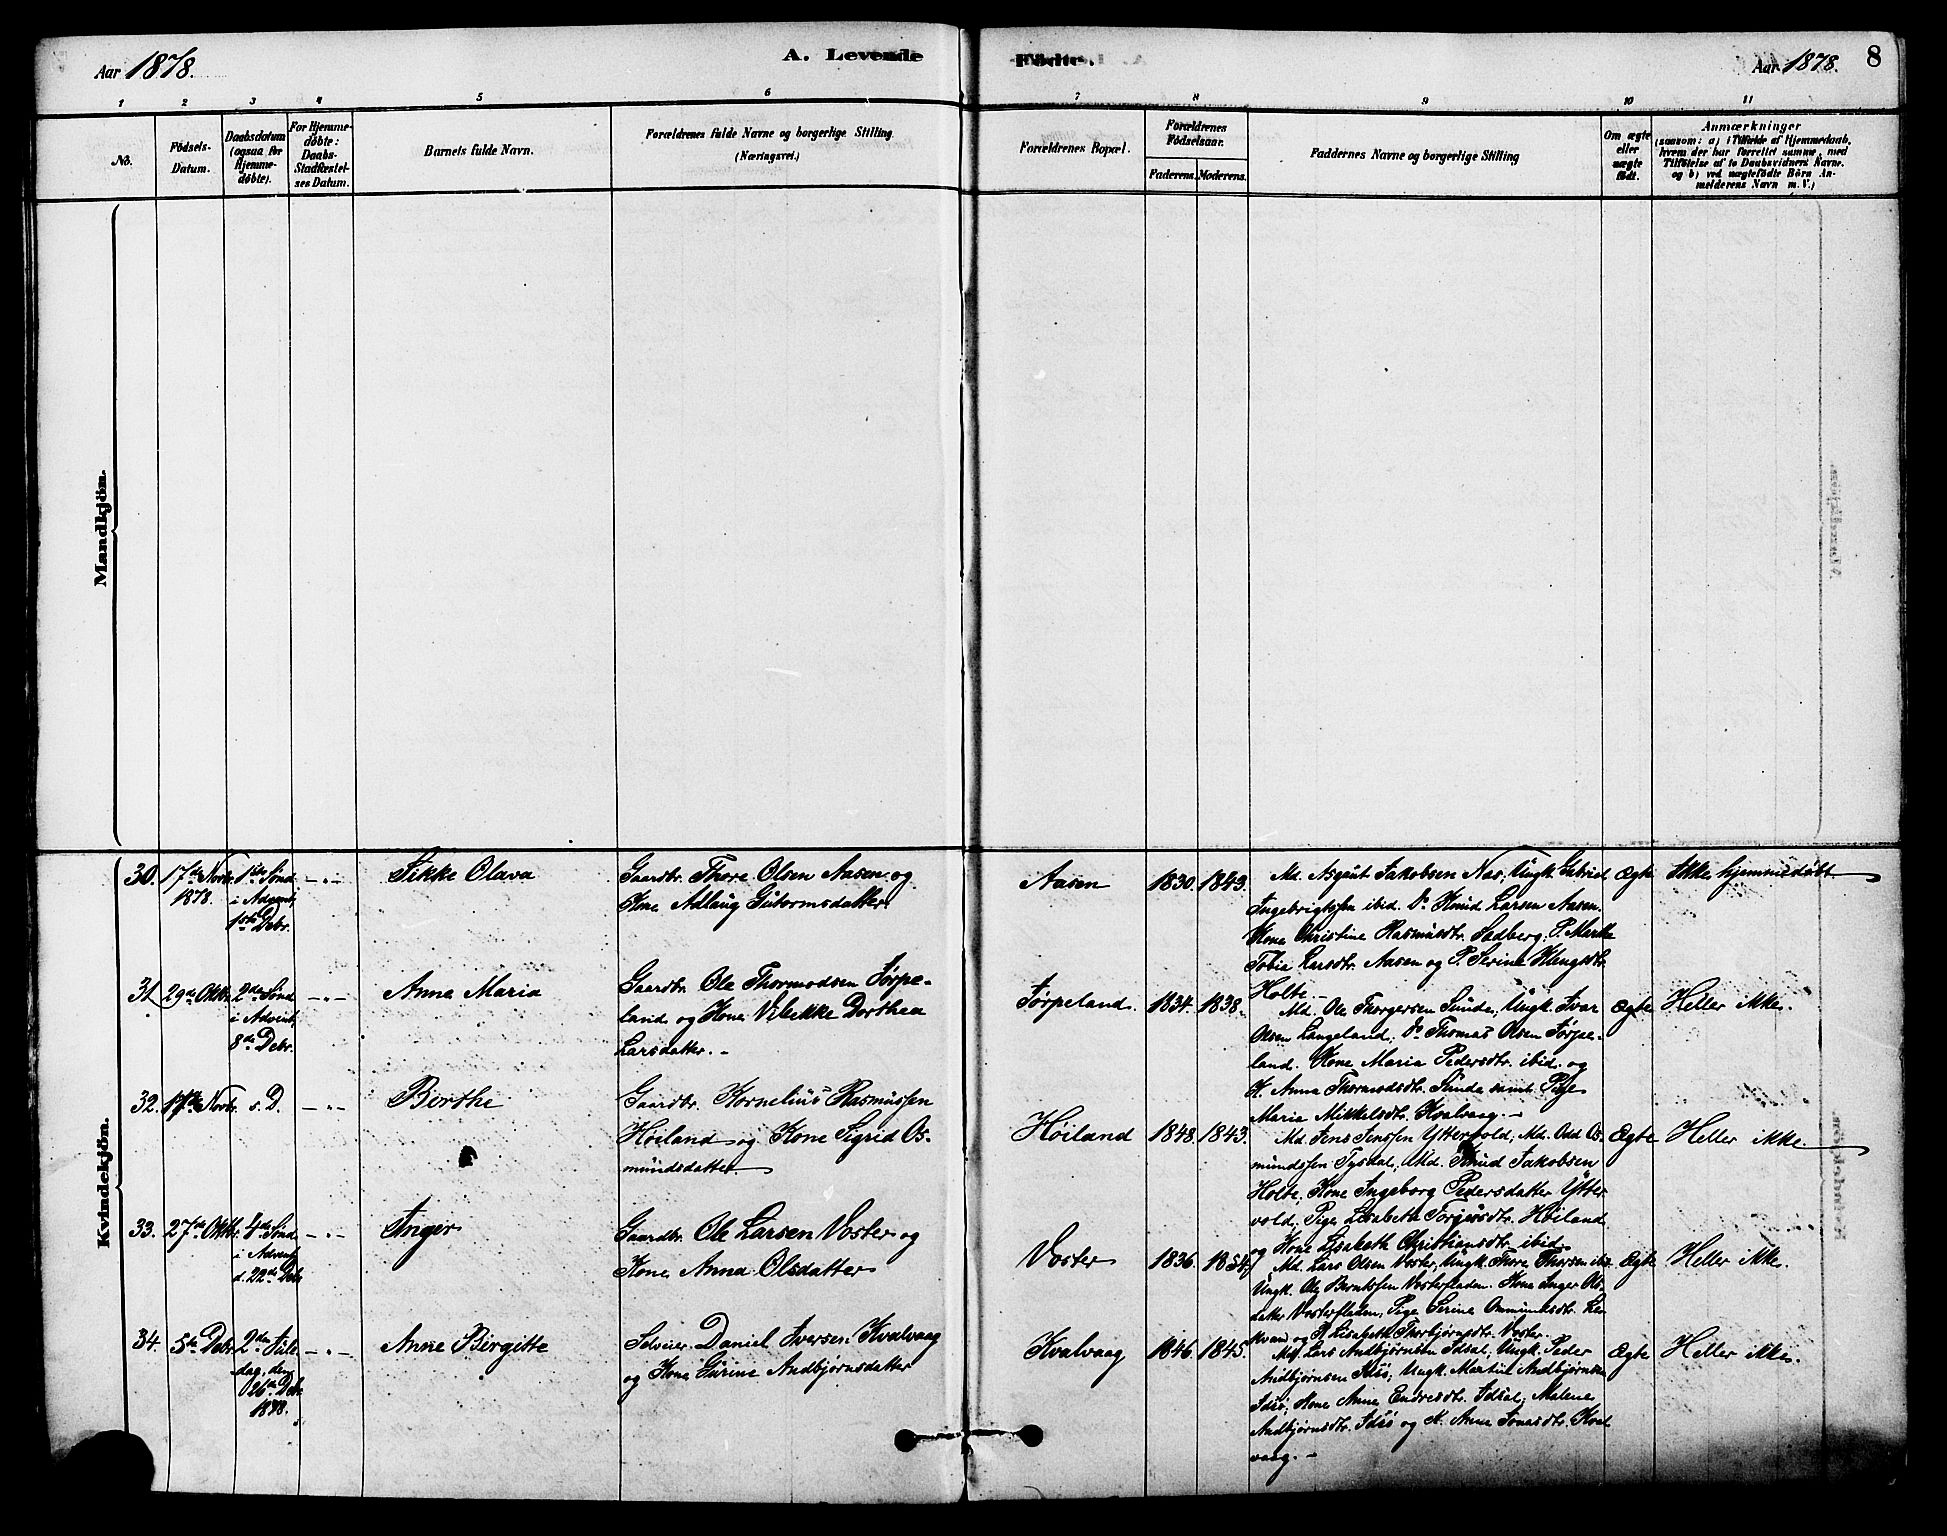 Aar 1878.
A. Levende
Fødte.
Aar 1878.
8
1 2 3 4 5 6 7 8 9 10 11
No.
Fødsels-
Datum.
Daabsdatum
(ogsaa for
Hjemme-
døbte).
For Hjemme-
døbte:
Daabs-
Stadfæstel-
ses Datum.
Barnets fulde Navn.
Forældrenes fulde Navne og borgerlige Stilling.
(Næringsvei.)
Forældrenes Bopæl.
Forældrenes
Fødselsaar.
Faderens. Moderens.
Faddernes Navne og borgerlige Stilling
Om ægte
eller
uægte
født.
Anmærkninger
(saasom: a) i Tilfælde af Hjemmedaab,
hvem der har forrettet samme, med
Tilføielse af to Daabsvidners Navne.
og b) ved uægtefødte Børn An-
melderens Navn m. V.)
Mandkjön.
Kvindekjön.
30.
17de Novbr.
1878.
1ste Sønd.
i Advent,
1ste Debr.
— " —
Sikke Olava
Gaardbr. Thore Olsen Aasen og
Kone Adlaug Gutormsdatter.
Aasen
1830.
1843.
Md. Asgaut Jakobsen Nas, Ungk. Gabriel
Ingebrigtssen ibid. Do Knud Larsen Aasen.
Kone Christine Rasmusdtr. Sadberg. P. Marthe
Tobia Larsdtr. Aasen og P. Serine Klengsdtr.
Holte —
Ægte
Ikke hjemmedøbt
31.
29de Oktbr.
2den Sønd.
i Advent,
8de Debr.
— " —
Anna Maria
Gaardbr. Ole Thormodsen Jørpe-
land og Kone Vibekke Dorthea
Larsdatter. —
Jørpeland.
1834.
1838.
Md. Ole Thorgersen Sunde, Ungk. Ivar
Olsen Langeland; Do Thomas Olsen Jørpe-
land. Kone Maria Pedersdtr. ibid. og
K. Anna Thormodsdtr. Sunde samt Pige
Maria Mikkelsdtr. Kvalvaag. —
Ægte
Heller ikke.
32.
17de Novbr.
s. D.
— " —
Berthe
Gaardbr. Kornelius Rasmussen
Høiland og Kone Sigrid Os-
mundsdatter
Høiland
1848.
1843.
Md. Jens Jenssen Yttervold; Md. Odd Os-
mundssen Tysdal; Md. Knud Jakobsen
Holte; Kone Ingeborg Pedersdatter Ytter
vold; Pige Lisabeth Torgersdtr. Høiland
og Kone Lisabeth Christiansdtr. ibid.
Ægte
Heller ikke.
33.
27de Oktbr.
4de Sønd.
i Advent,
d. 22de Debr.
— " —
Inger
Gaardbr. Ole Larsen Voster og
Kone Anna Olsdatter
Voster
1836.
1854.
Md. Lars Olsen Voster, Ungk. Thore Thorsen ibid
Ungk. Ole Berntssen Vosterfladen. Kone Inger Ols-
datter Vosterfladen, Pige Serine Ommundsdtr. Le-
kvam og P. Lisabeth Thorbjørnsdtr. Voster.
Ægte
Heller ikke.
34.
5te Debr.
2den Jule
dag, den
26de Debr.
1878.
— " —
Anne Birgitte
Selveier Daniel Iversen Kvalvaag
og Kone Gurine Andbjørnsdatter
Kvalvaag
1846.
1845.
Md. Lars Andbjørnsen Idsal; Ungk. Peder
Andbjørnsen Idsø; Ungk. Martin Andbjørnsen
Idsø; Kone Anne Endresdtr. Idsal; Malene
Andbjørnsdtr. Idsø og K. Anna Jonasdtr. Kval
vaag. —
Ægte
Heller ikke.